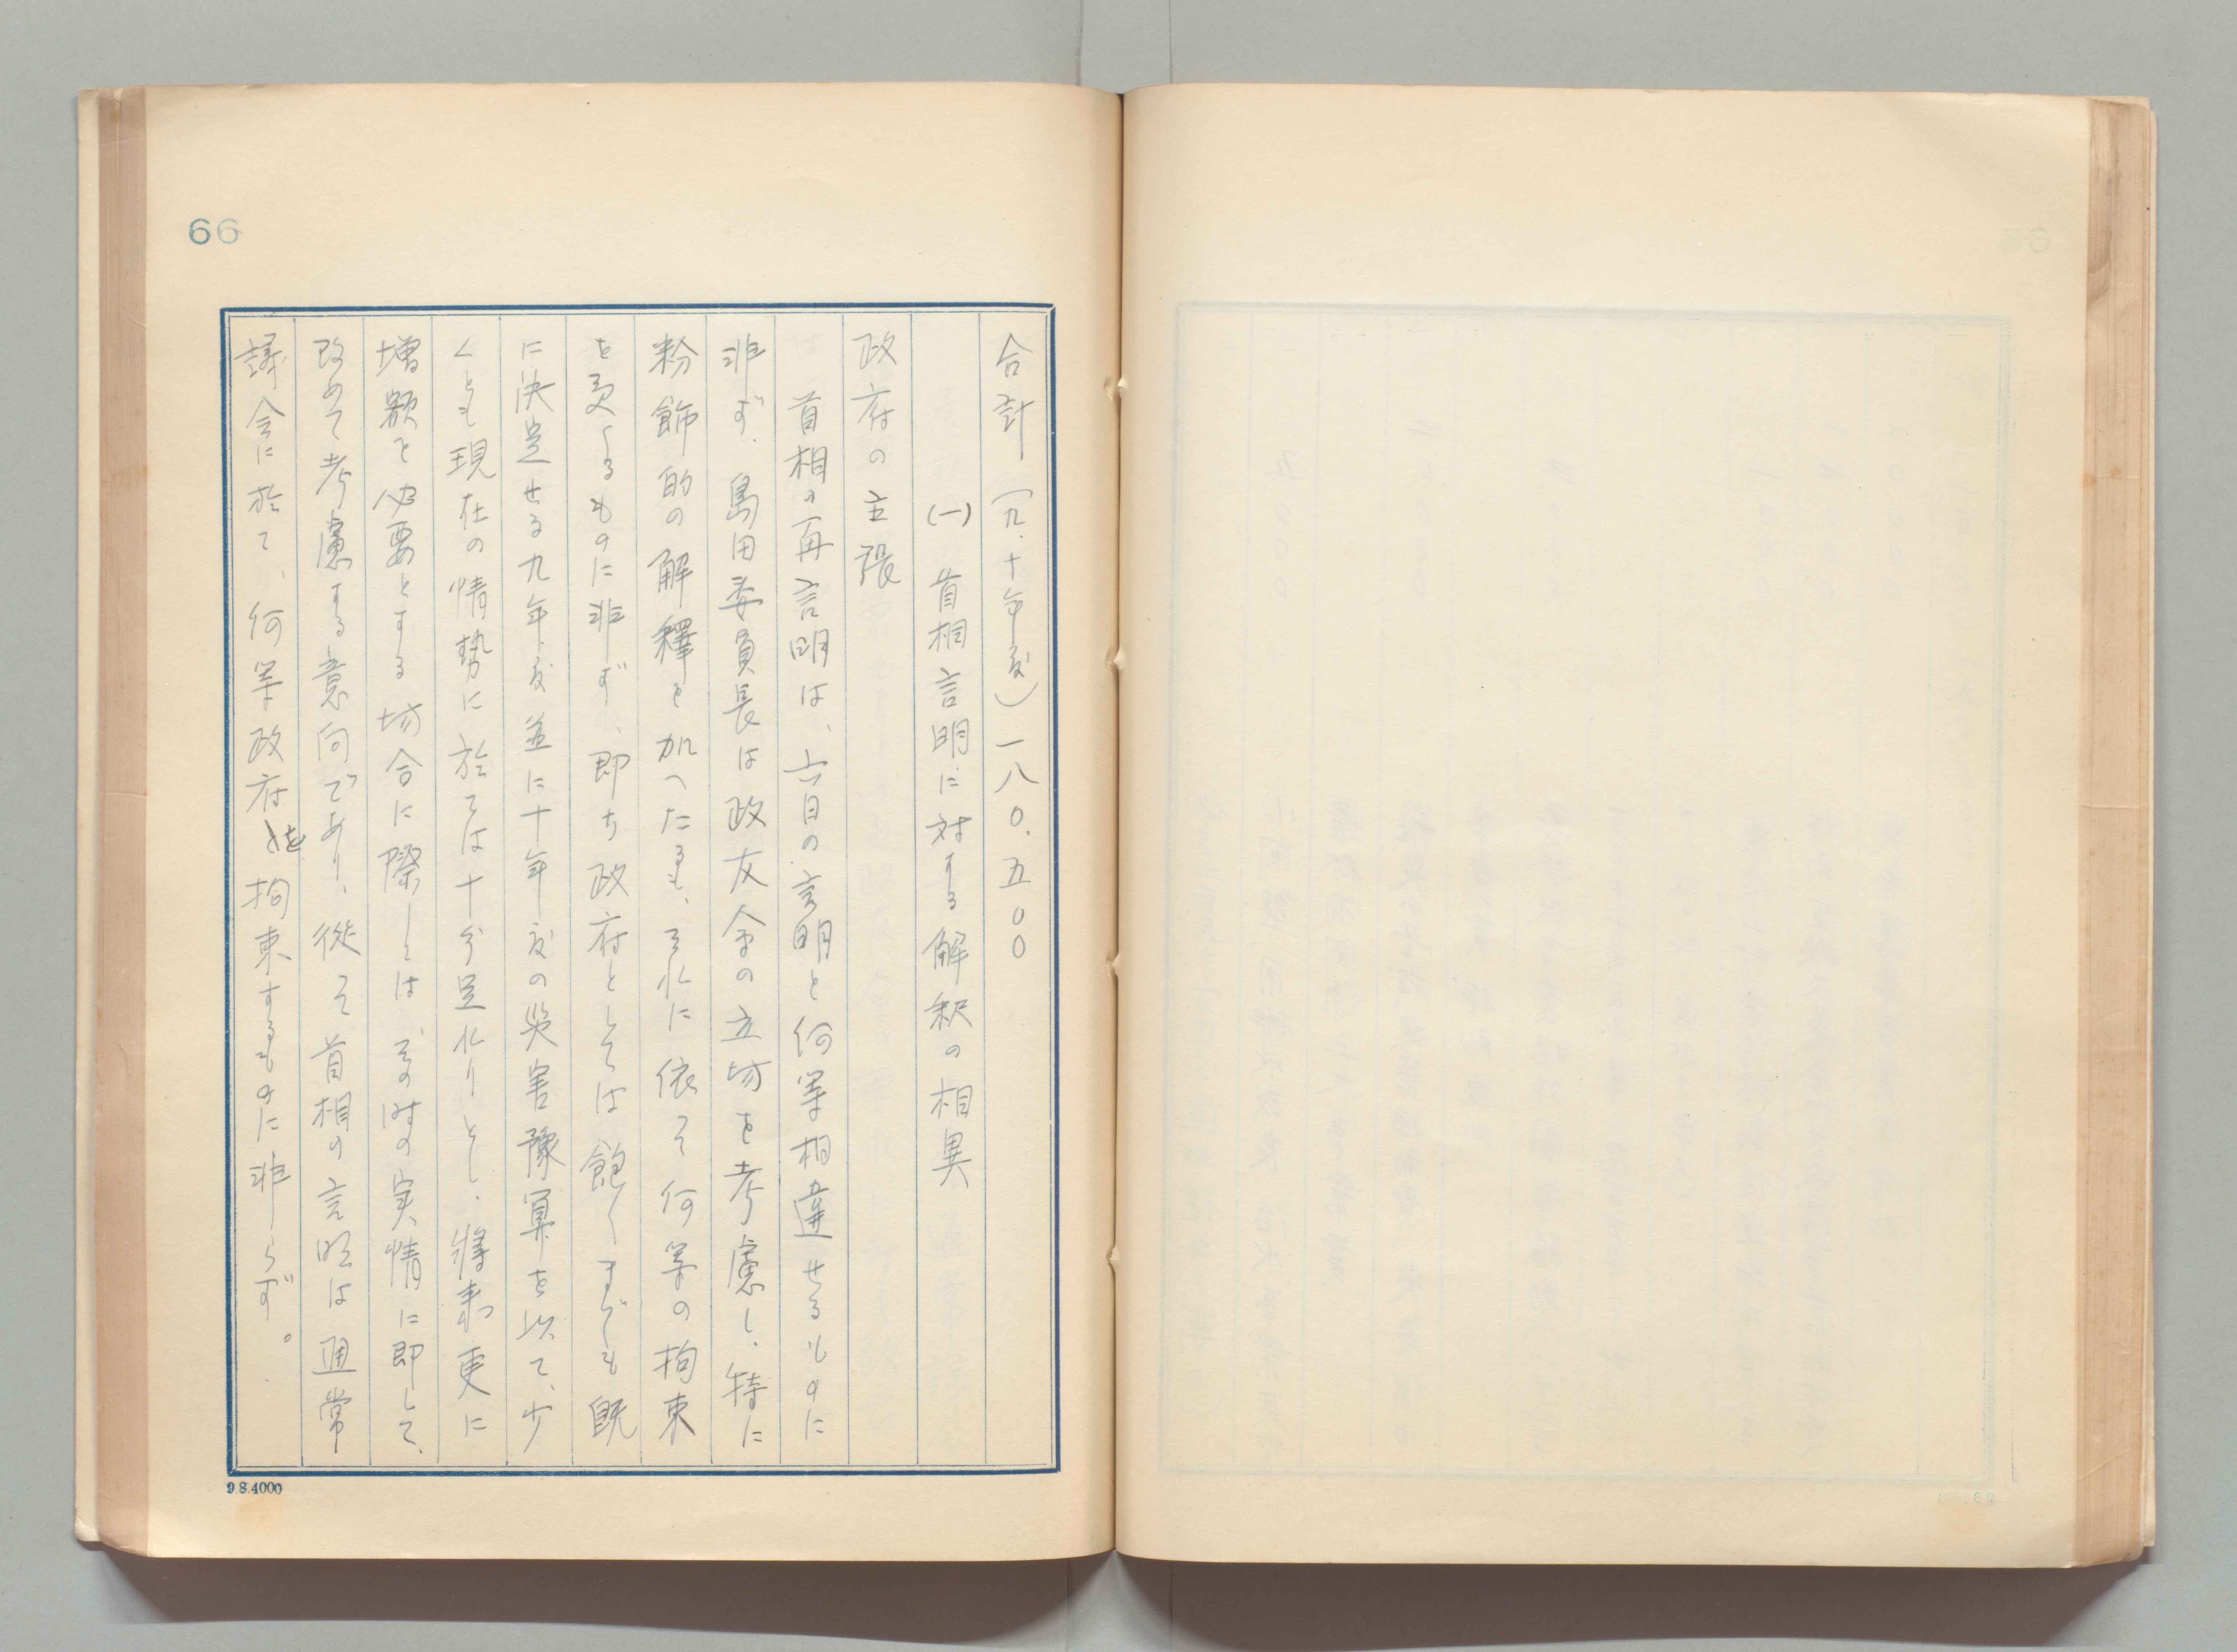 66
合計(九.十年度)一八〇.五〇〇
(一)首相言明に対する解釈の相異
政府の主張
首相の再言明は、六日の言明と何等相違せるものに
非ず.島田委員長は政友会の立場を考慮し.特に
粉飾的の解釋を加へたるも、それに依て何等の拘束
を受くるものに非ず、即ち政府としては飽くまでも既
に決定せる九年度並に十年度の災害豫算を以て、少
くとも現在の情勢に於ては十分足れりとし、將来更に
増額を必要とする場合に際しては、その時の実情に即して、
改めて考慮する意向であり、從て首相の言明は通常
議会に於て、何等政府を拘束するものに非らず。
9.8.4000